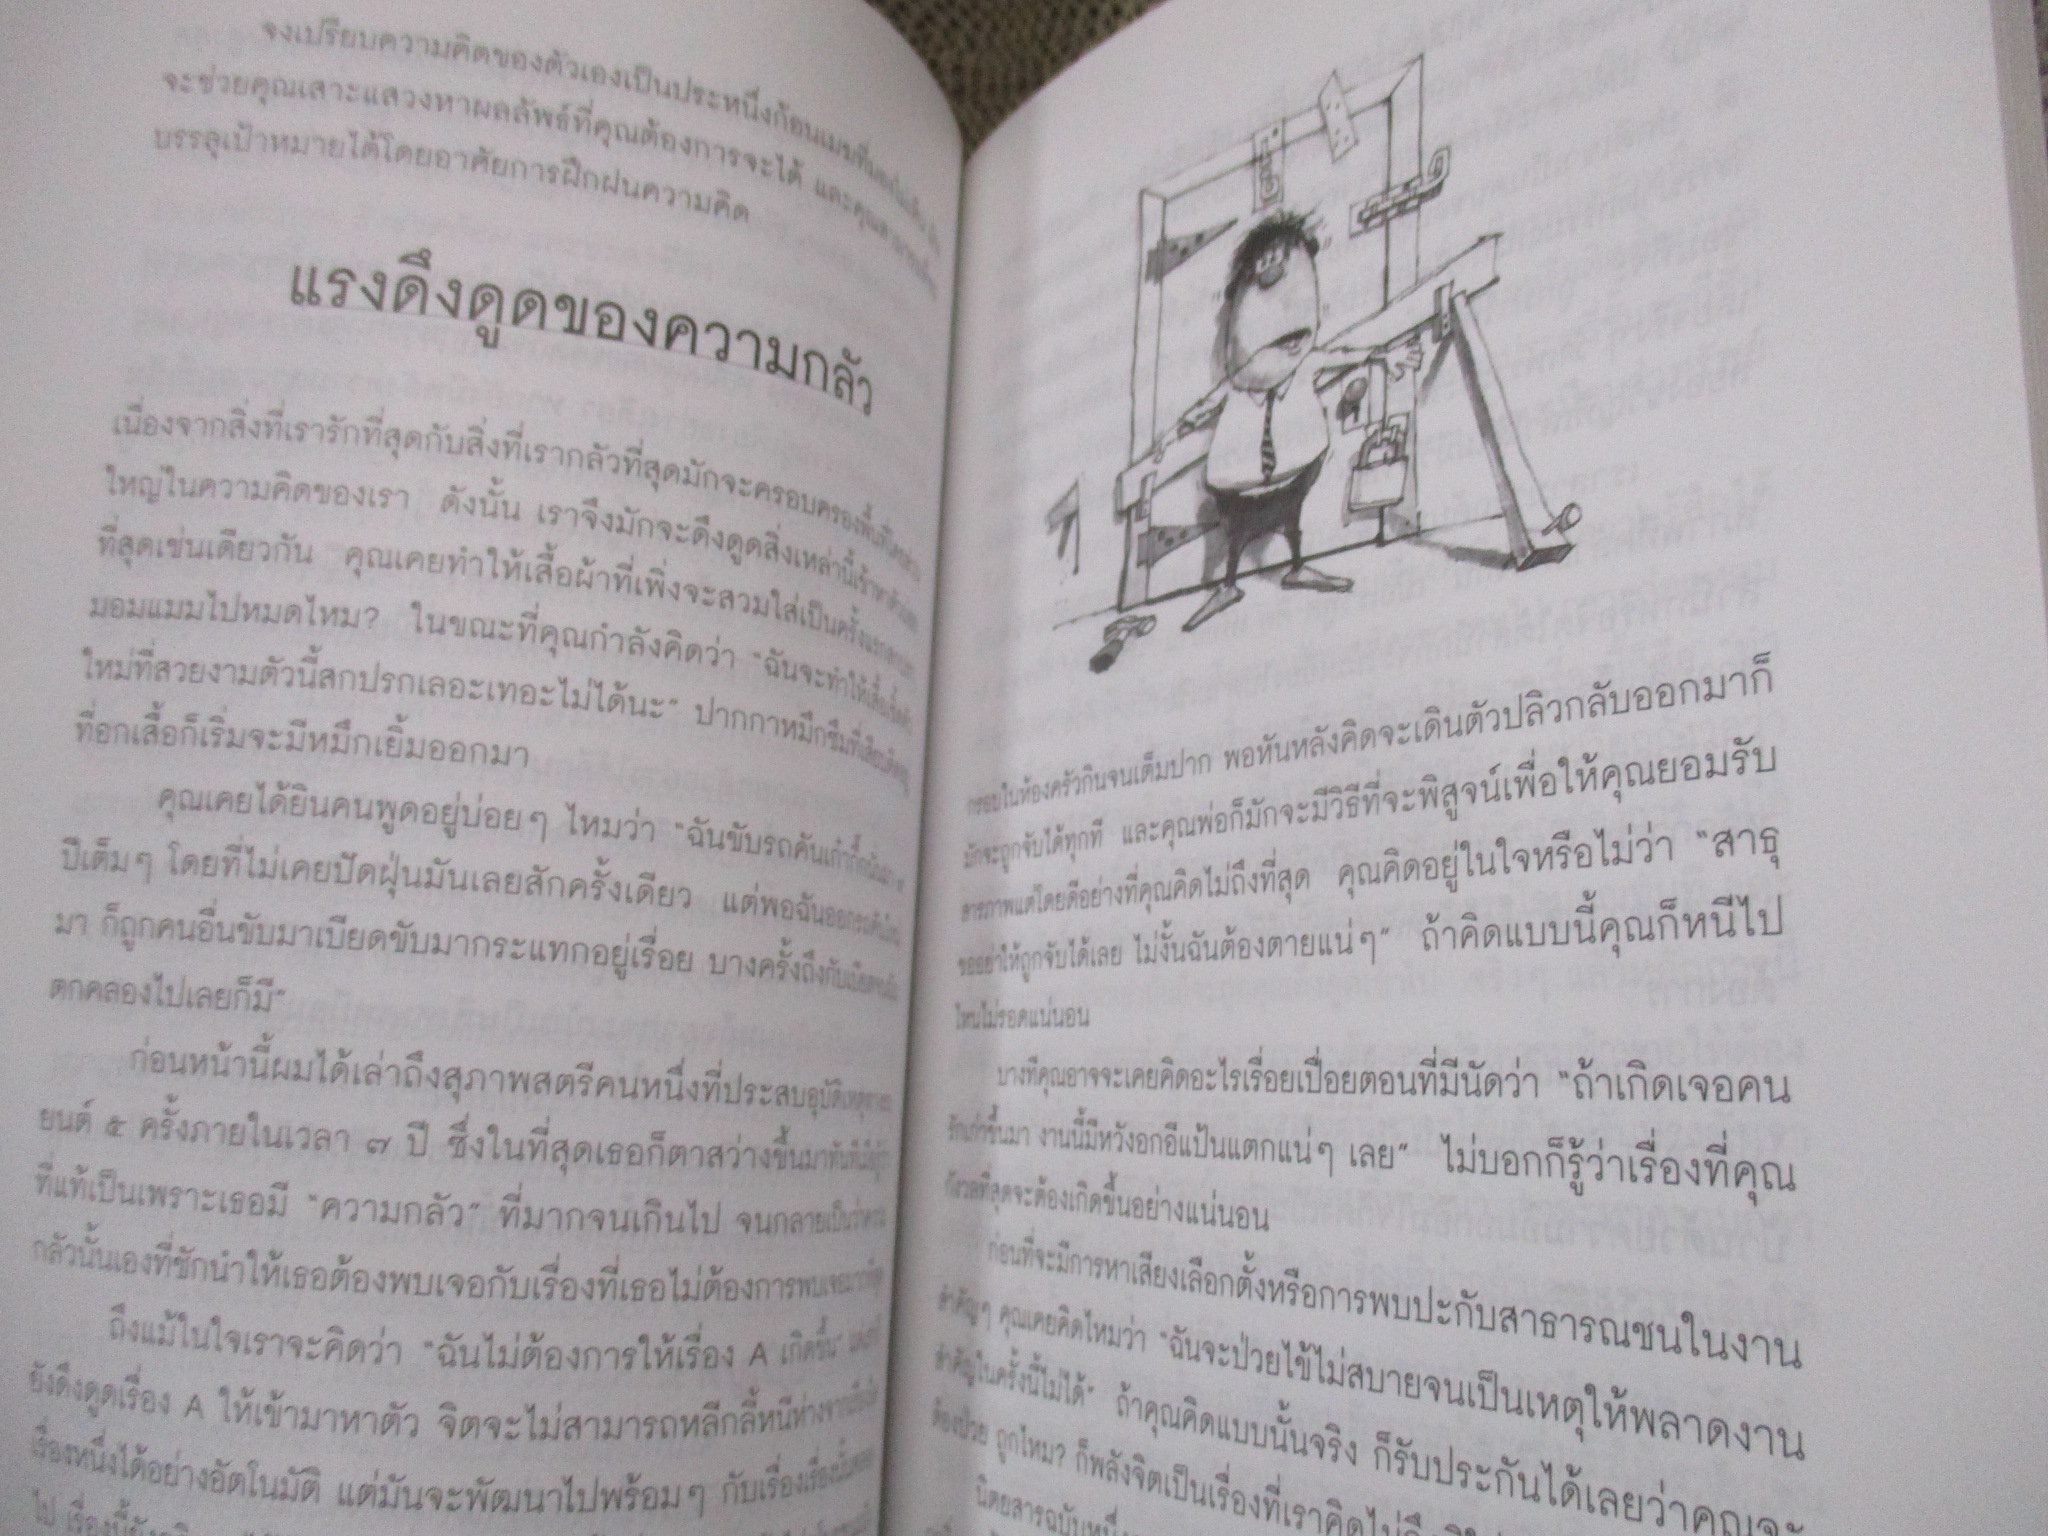 จงเปรียบความคิดของตัวเองเป็นประหนึ่งก้อนเมฆที่
จะช่วยคุณเสาะแสวงหาผลลัพธ์ที่คุณต้องการจะได้ และคุณ
บรรลุเป้าหมายได้โดยอาศัยการฝึกฝนความคิด
แรงดึงดูดของความกลัว
เนื่องจากสิ่งที่เรารักที่สุดกับสิ่งที่เรากลัวที่สุดมักจะครอบครองพื้นที่
ใหญ่ในความคิดของเรา ดังนั้น เราจึงมักจะดึงดูดสิ่งเหล่านี้เข้าหาตัว
ที่สุดเช่นเดียวกัน คุณเคยทำให้เสื้อผ้าที่เพิ่งจะสวมใส่เป็นครั้งแรก
มอมแมมไปหมดไหม? ในขณะที่คุณกำลังคิดว่า "ฉันจะทำให้เสื้อ
ใหม่ที่สวยงามตัวนี้สกปรกเลอะเทอะไม่ได้นะ" ปากกาหมึกซึมที่
ที่อกเสื้อก็เริ่มจะมีหมึกเยิ้มออกมา
คุณเคยได้ยินคนพูดอยู่บ่อยๆ ไหมว่า "ฉันขับรถคันเก่า
ปีเต็มๆ โดยที่ไม่เคยปัดฝุ่นมันเลยสักครั้งเดียว แต่พอฉันออกรถ
มา ก็ถูกคนอื่นขับมาเบียดขับมากระแทกอยู่เรื่อย บางครั้งถึงกับเบียด
ตกคลองไปเลยก็มี"
ก่อนหน้านี้ผมได้เล่าถึงสุภาพสตรีคนหนึ่งที่ประสบอุบัติเหตุ
ยนต์ ๕ ครั้งภายในเวลา ๗ ปี ซึ่งในที่สุดเธอก็ตาสว่างขึ้นมาทันที
ที่แท้เป็นเพราะเธอมี "ความกลัว" ที่มากจนเกินไป จนกลายเป็นว่าความ
กลัวนั้นเองที่ชักนำให้เธอต้องพบเจอกับเรื่องที่เธอไม่ต้องการพบเจอมากที่สุด
ถึงแม้ในใจเราจะคิดว่า "ฉันไม่ต้องการให้เรื่อง A เกิดขึ้น"
ยังดึงดูดเรื่อง A ให้เข้ามาหาตัว จิตจะไม่สามารถหลีกลี้หนีห่างจาก
เรื่องหนึ่งได้อย่างอัตโนมัติ แต่มันจะพัฒนาไปพร้อมๆ กับเรื่อง
ไป
กรอบในห้องครัวกินจนเต็มปาก พอหันหลังคิดจะเดินตัวปลิวกลับออกมาก็
มักจะถูกจับได้ทุกที และคุณพ่อก็มักจะมีวิธีที่จะพิสูจน์เพื่อให้คุณยอมรับ
สารภาพแต่โดยดีอย่างที่คุณคิดไม่ถึงที่สุด คุณคิดอยู่ในใจหรือไม่ว่า "สาธุ
ขออย่าให้ถูกจับได้เลย ไม่งั้นฉันต้องตายแน่ๆ" ถ้าคิดแบบนี้คุณก็หนีไป
ไหนไม่รอดแน่นอน
บางทีคุณอาจจะเคยคิดอะไรเรื่อยเปื่อยตอนที่มีนัดว่า "ถ้าเกิดเจอคน
รักเก่าขึ้นมา งานนี้มีหวังอกอีแป้นแตกแน่ๆ เลย" ไม่บอกก็รู้ว่าเรื่องที่คุณ
กังวลที่สุดจะต้องเกิดขึ้นอย่างแน่นอน
ก่อนที่จะมีการหาเสียงเลือกตั้งหรือการพบปะกับสาธารณชนในงาน
สำคัญๆ คุณเคยคิดไหมว่า "ฉันจะป่วยไข้ไม่สบายจนเป็นเหตุให้พลาดงาน
สำคัญในครั้งนี้ไม่ได้" ถ้าคุณคิดแบบนั้นจริง ก็รับประกันได้เลยว่าคุณจะ
ต้องป่วย ถูกไหม? ก็พลังจิตเป็นเรื่องที่เราคิดไม่ถึง
นิตยสารฉบับหนึ่ง